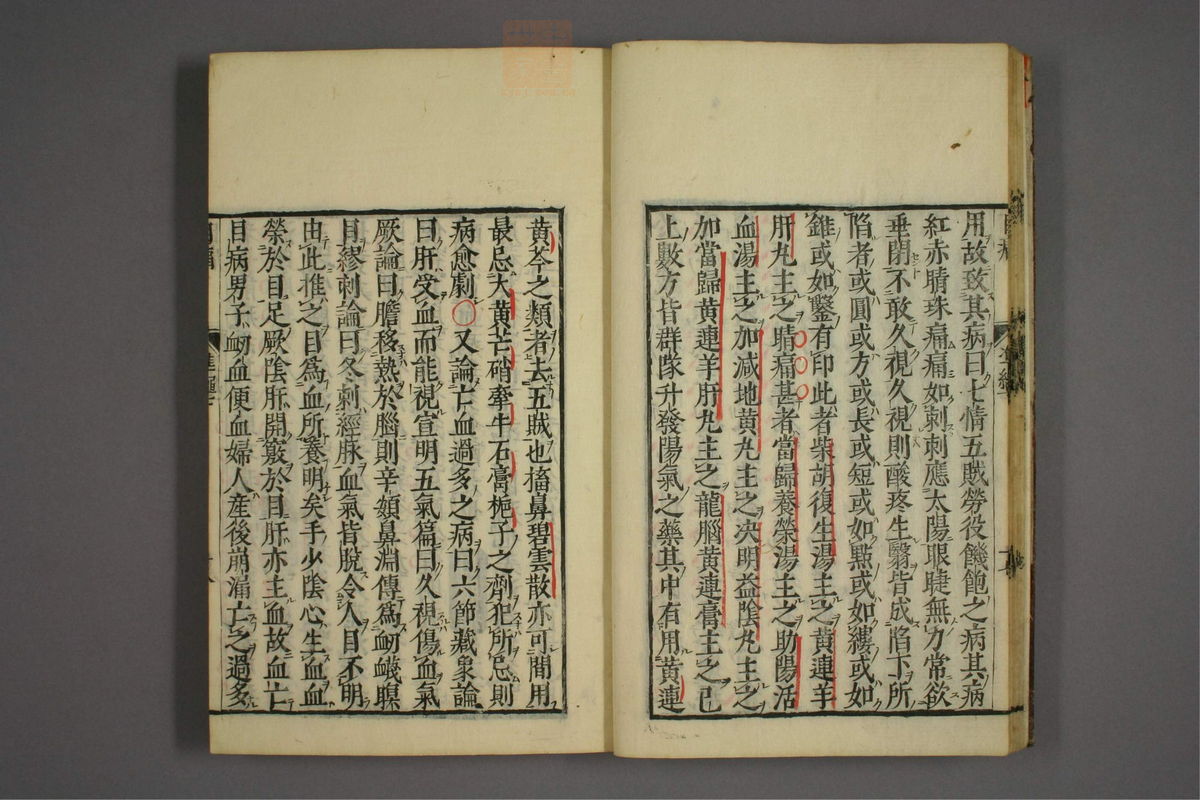 用故致其病曰七情五賊勞役饑飽之病其病
紅赤睛珠痛痛如刺刺應太陽眼睫無力常欲
垂閉不敢久視久視則酸疼生翳皆成陷下所
陷者或圓或方或長或短或如點或如縷或如
錐或如鑿有印此者柴胡復生湯主之黃連羊
肝丸主之睛痛甚者當歸養榮湯主之助陽活
血湯主之加減地黃丸主之决明益陰丸主之
加當歸黃連羊肝丸主之龍腦黃連膏主之已
上數方皆群隊升發陽氣之藥其中有用黃連
黃芩之類者去五賊也搐鼻碧雲散亦可間用
最忌大黃芒硝牽牛石膏梔子之劑犯所忌則
病愈劇○又論亡血過多之病曰六節藏象論
曰肝受血而能視宣明五氣篇曰久視傷血氣
厥論曰膽移熱於腦則辛頞鼻淵傳為衂衊瞑
目繆刺論曰冬刺經脉血氣皆脫令人目不明
由此推之目為血所養明矣手少陰心生血血
榮於目足厥陰肝開竅於目肝亦主血故血亡
目病男子衂血便血婦人産後崩漏亡之過多